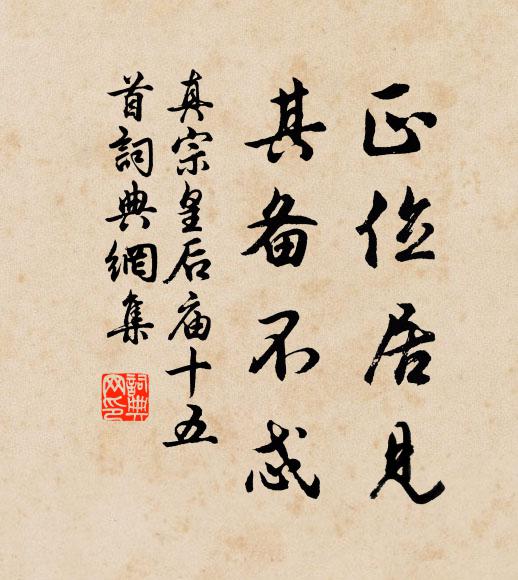 正位居见
其备不忒
真宗皇后庙十五
首詞典網集
詞典
网印